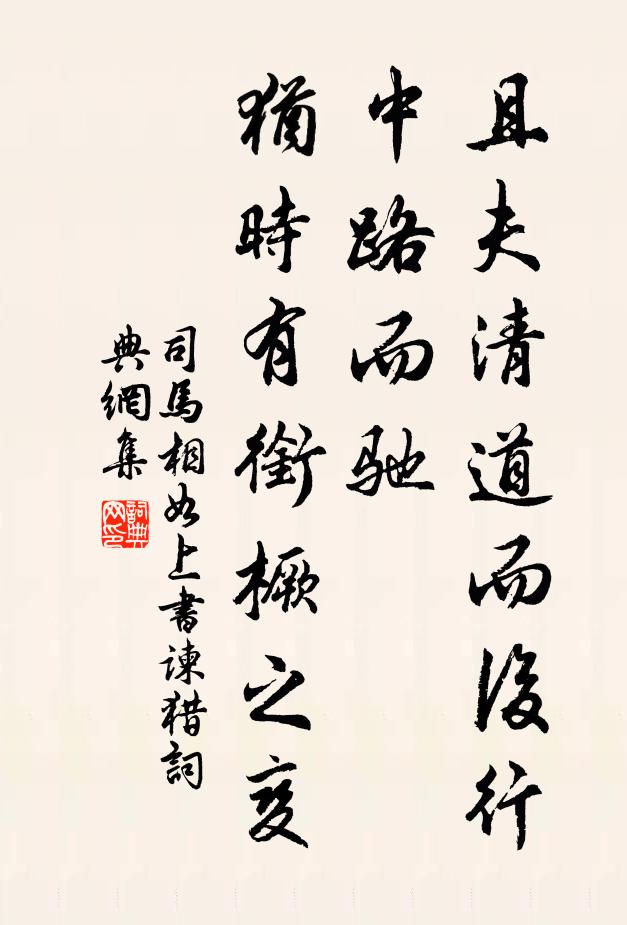 且夫清道而後行
中路而驰
猶時有銜橛之变
司馬相如上書諫猎詞
典網集
詞典
网印